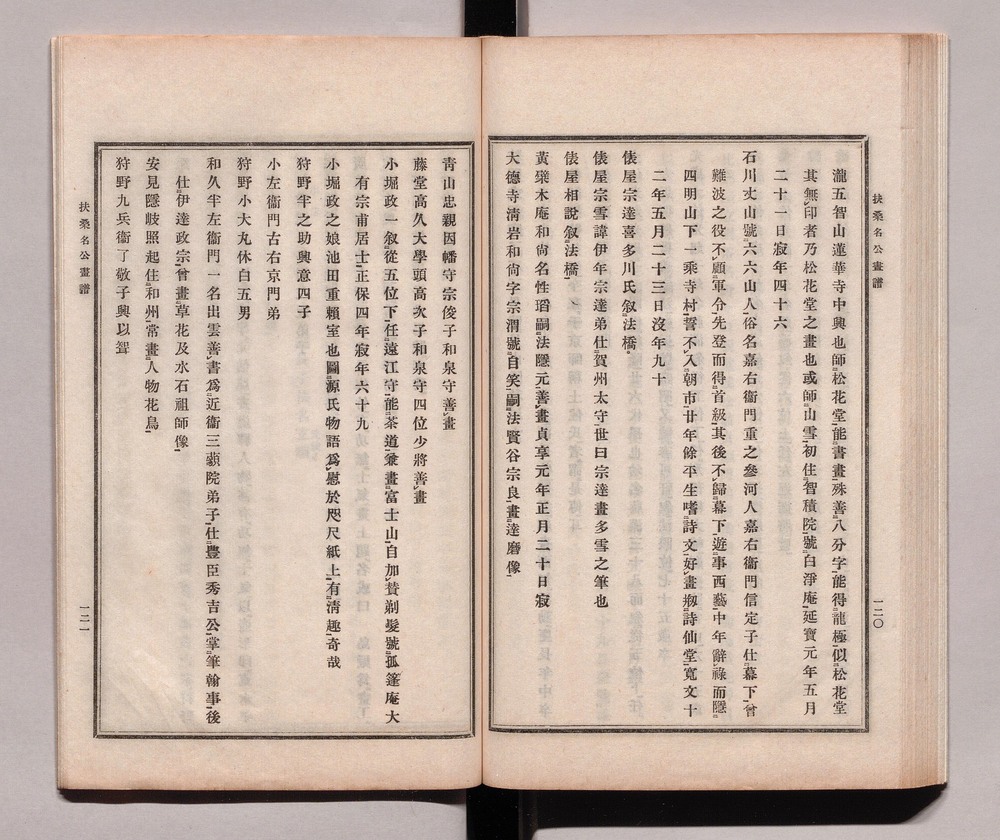 扶桑名公畫譜
一二〇
瀧五智山蓮華寺中興也師松花堂能書畫殊善八分字能得龍極似松花堂
其無印者乃松花堂之畫也或師山雪初住智積院號白淨庵延寶元年五月
二十一日寂年四十六
石川丈山號六六山人俗名嘉右衞門重之參河人嘉右衞門信定子仕幕下曾
難波之役不顧軍令先登而得首級其後不歸幕下遊事西藝中年辭祿而隱
四明山下一乘寺村誓不入朝市廿年餘平生嗜詩文好畫剏詩仙堂寬文十
二年五月二十三日沒年九十
俵屋宗達喜多川氏叙法橋
俵屋宗雪諱伊年宗達弟仕賀州太守世曰宗達畫多雪之筆也
俵屋相說叙法橋
黃檗木庵和尙名性瑫嗣法隱元善畫貞享元年正月二十日寂
大德寺淸岩和尙字宗渭號自笑嗣法賢谷宗良畫達磨像
靑山忠親因幡守宗俊子和泉守善畫
藤堂高久大學頭高次子和泉守四位少將善畫
小堀政一叙從五位下任遠江守能茶道兼畫富士山自加贊剃髮號孤篷庵大
有宗甫居士正保四年寂年六十九
小堀政之娘池田重賴室也圖源氏物語爲慰於咫尺紙上有淸趣奇哉
狩野半之助興意四子
小左衞門古右京門弟
狩野小大丸休白五男
和久半左衞門一名出雲善書爲近衞三藐院弟子仕豐臣秀吉公掌筆翰事後
仕伊達政宗曾畫草花及水石祖師像
安見隱岐照起住和州常畫人物花鳥
狩野九兵衞了敬子興以聟
扶桑名公畫譜
一二一